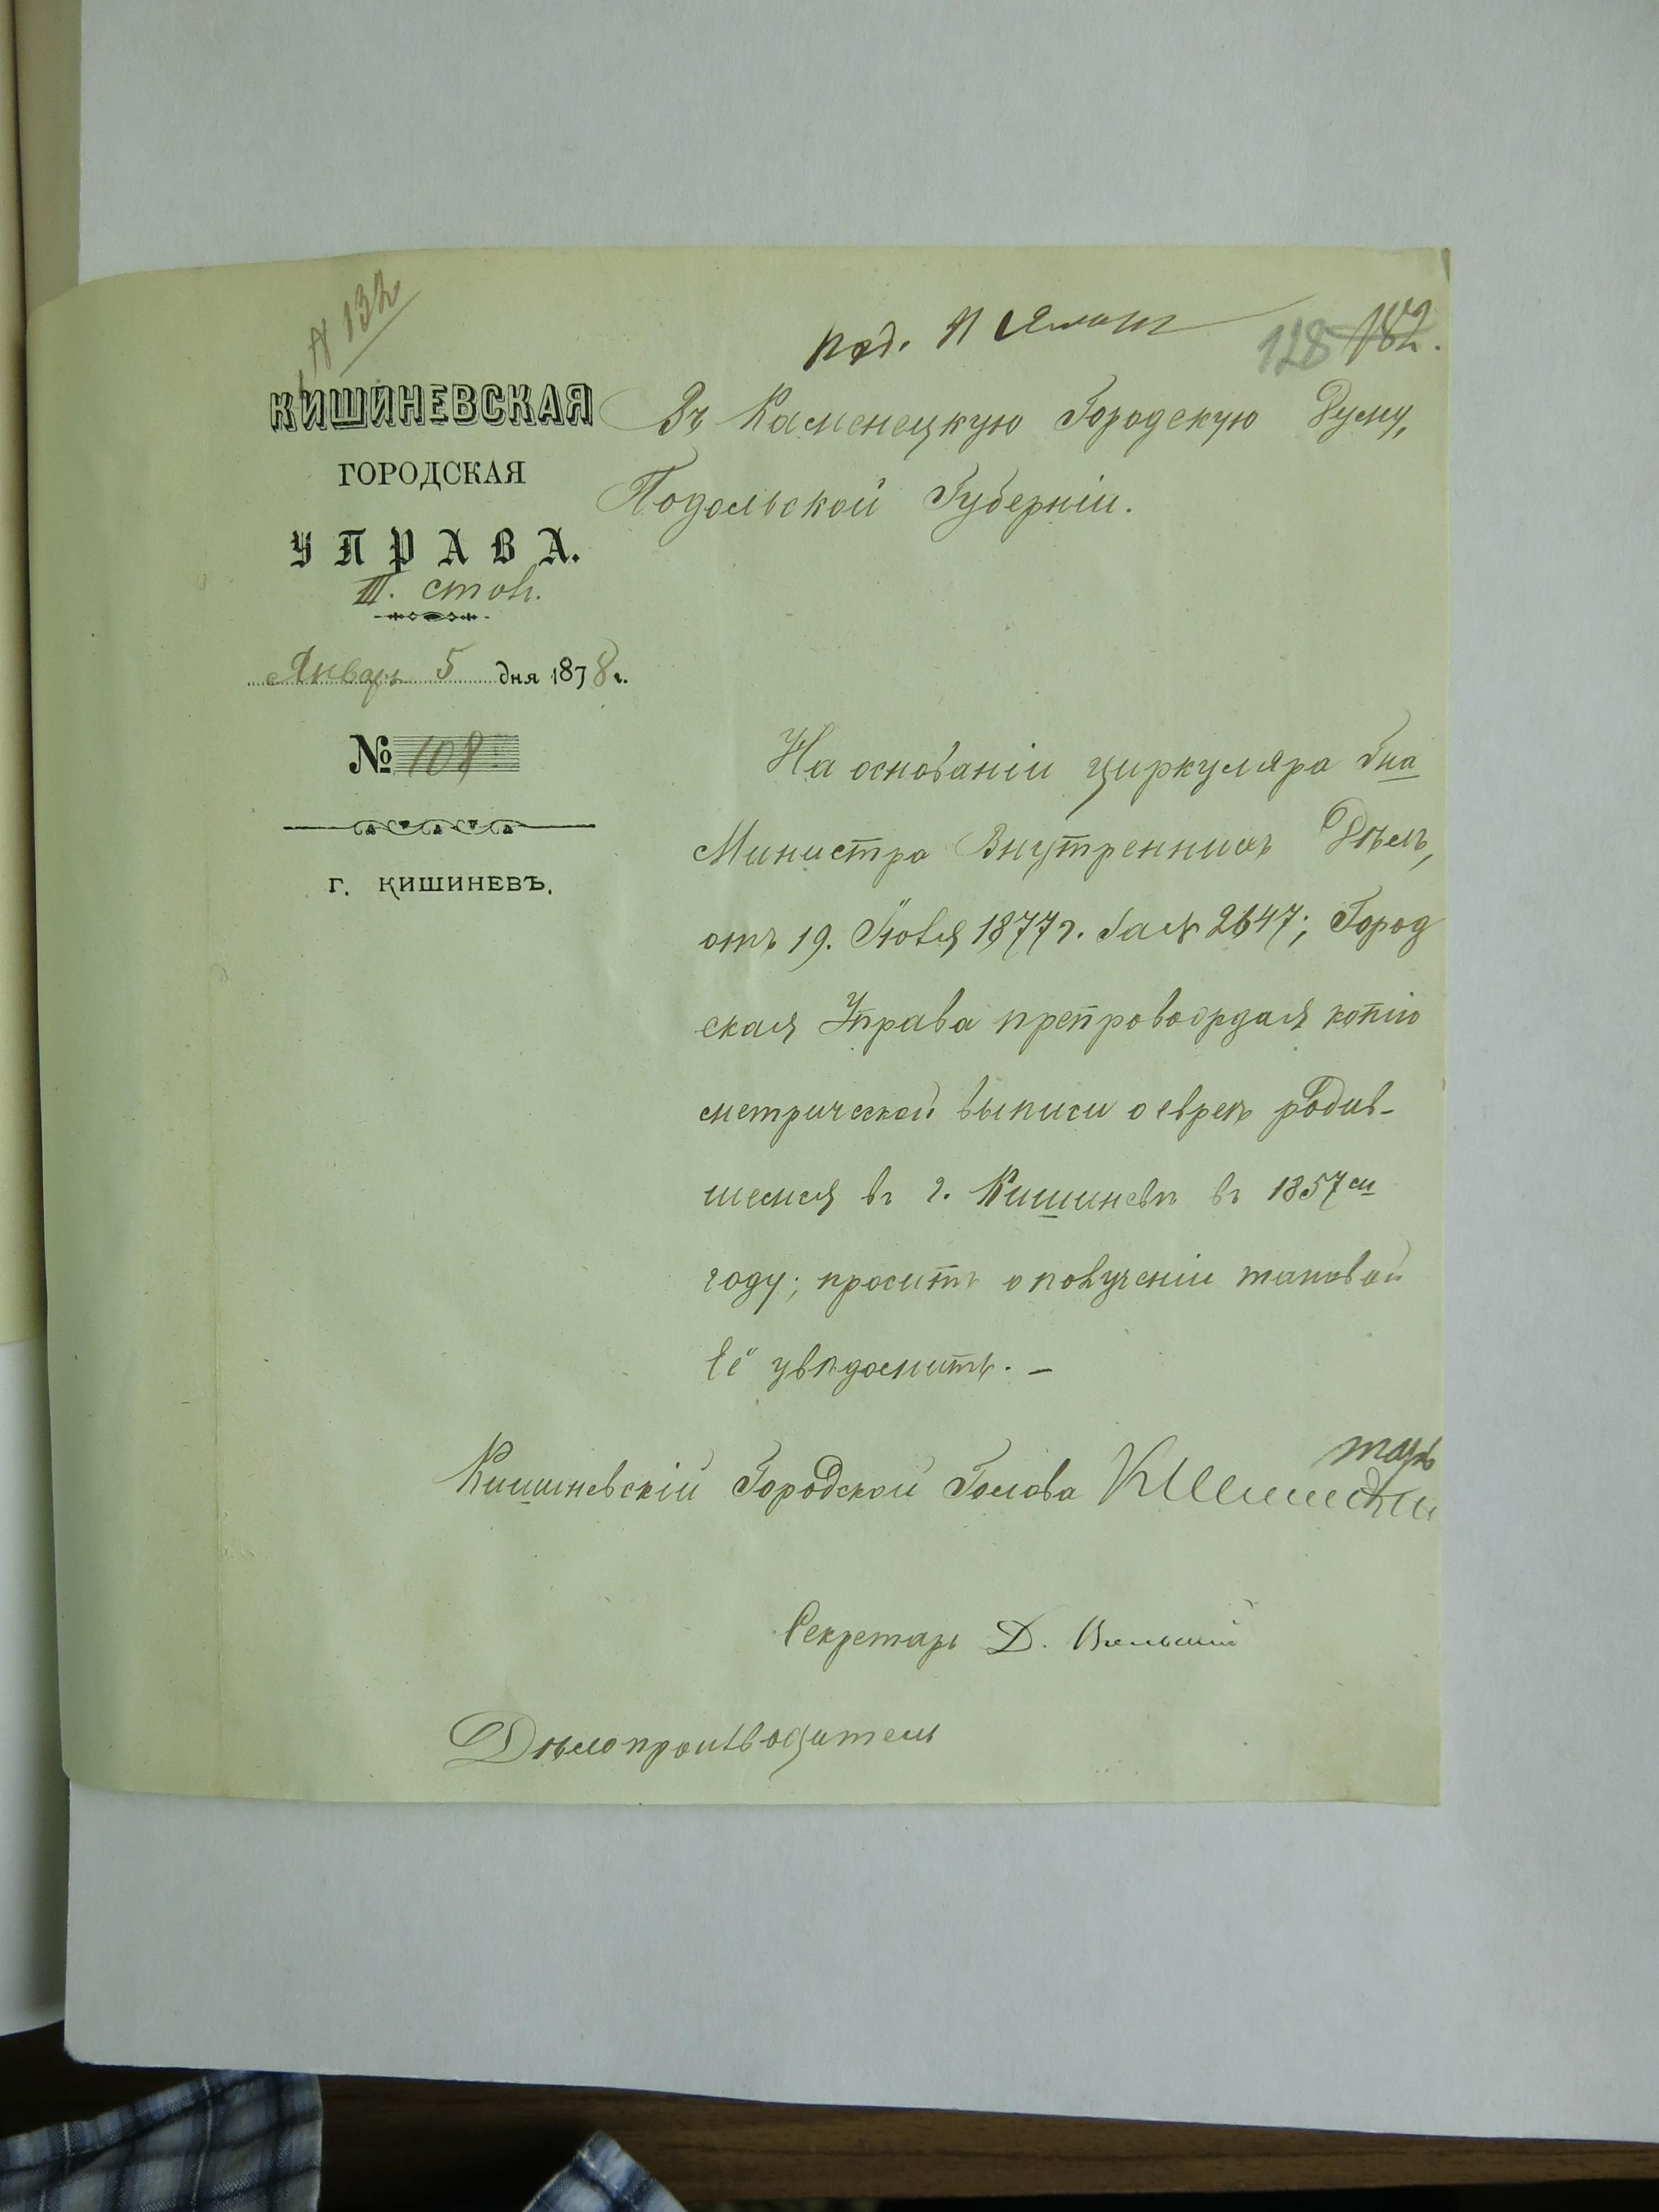 № 132
пол. 11 Января
128 182.
КИШИНЕВСКАЯ
ГОРОДСКАЯ
УПРАВА.
III. столъ.
Январь 5 дня 1878 г.
№ 108
г. КИШИНЕВЪ.
Въ Каменецкую Городскую Думу,
Подольской Губерніи.
На основаніи циркуляра Гна
Министра Внутреннихъ Дѣлъ,
отъ 19. Іюля 1877 г. за № 2647; Город
ская Управа препровождая копію
метрической выписи о евреѣ родив-
шемся въ г. Кишиневѣ въ 1857м
году; проситъ о полученіи таковой
Её увѣдомить. –
Кишиневскій Городской Голова К Шмидтъ
Секретарь Д.
Дѣлопроизводитель